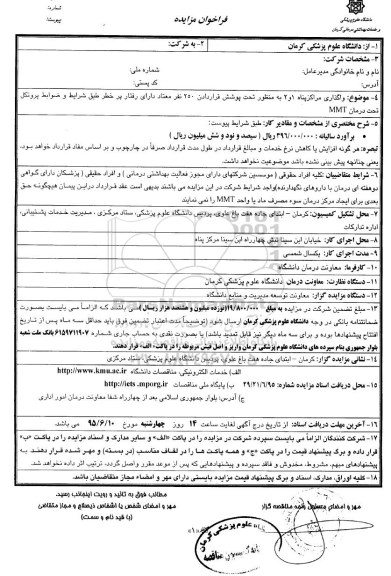 شماره:
پیوست:
فراخوان مزایده
دانشگاه علوم پزشکی
و خدمات بهداشتی درمانی کرمان
۱- از: دانشگاه علوم پزشکی کرمان
۲- به شرکت:
۳- مشخصات شرکت:
نام و نام خانوادگی مدیرعامل: شماره ملی:
آدرس: کد پستی:
۴- موضوع: واگذاری مراکز پناه ۱و۲ به منظور تحت پوشش قراردادن ۲۵۰ نفر معتاد دارای رفتار پر خطر طبق شرایط و ضوابط پروتکل
تحت درمان MMT
۵- شرح مختصری از مشخصات و مقادیر کار: طبق شرایط پیوست:
برآورد سالیانه : ۳۹۶/۰۰۰/۰۰۰ ریال ( سیصد و نود و شش میلیون ریال )
تبصره: هر گونه افزایش یا کاهش نرخ خدمات و مبالغ قرارداد در طول مدت قرارداد صرفاً در چارچوب و بر اساس مفاد قرارداد خواهد بود.
یعنی چنانچه پیش بینی نشده باشد موضوعیت نخواهد داشت.
۶- شرایط متقاضیان: کلیه افراد حقوقی ( موسسین شرکتهای دارای مجوز فعالیت بهداشتی درمانی ) و افراد حقیقی ( پزشکان دارای گواهی
دوهفته ای درمان با داروهای نگهدارنده) واجد شرایط شرکت در این مزایده می باشند بدیهی است عقد قرارداد دراین پیمان هیچگونه حق
بعدی برای ایجاد مرکز درمان سوء مصرف ماد یا واحد MMT نخواهد داشت.
۷- محل تشکیل کمیسیون: کرمان - ابتدای جاده هفت باغ علوی، پردیس دانشگاه علوم پزشکی، ستاد مرکزی ، مدیریت خدمات پشتیبانی،
اداره تدارکات
۸- محل اجرای کار: خیابان ابن سینا نبش چهارراه ابن سینا مرکز پناه
۹- مدت اجرای کار: یکسال شمسی
۱۰- کارفرما: معاونت درمان دانشگاه
۱۱- دستگاه نظارت: معاونت درمان دانشگاه علوم پزشکی کرمان
۱۲- دستگاه مزایده گزار: معاونت توسعه مدیریت و منابع دانشگاه
۱۳- مبلغ تضمین شرکت در مزایده به مبلغ ۱۹/۸۰۰/۰۰۰ (نوزده میلیون و هشتصد هزار ریال) می باشد که الزاماً می بایست بصورت
ضمانتنامه بانکی در وجه دانشگاه علوم پزشکی کرمان ارسال شود (توضیحاً مدت اعتبار تضمین فوق باید حداقل سه ماه پس از تاریخ
افتتاح پیشنهادها بوده و برای سه ماه دیگر نیز قابل تمدید باشد) یا بصورت نقدی به حساب جاری شماره ۶۱۵۹۷۱۱۹۰۷ بانک ملت شعبه
بلوار جمهوری بنام سپرده های دانشگاه علوم پزشکی کرمان واریز و اصل فیش مربوطه را در پاکت، الف، قرار دهند.
۱۴- نشانی مزایده گزار: کرمان - ابتدای جاده هفت باغ علوی، پردیس دانشگاه علوم پزشکی، ستاد مرکزی
۱۵- محل دریافت اسناد مزایده شماره: ۲۹/۲۱/۱/۹۵
الف) خدمات الکترونیکی مناقصات دانشگاه http://www.kmu.ac.ir
ب) پایگاه ملی مناقصات http://iets.mporg.ir
ج) آدرس: بلوار جمهوری اسلامی بعد از چهارراه شفا معاونت درمان امور اداری
۱۶- آخرین مهلت دریافت اسناد: از تاریخ درج آگهی لغایت ساعت ۱۴ روز چهارشنبه مورخ ۹۵/۶/۱۰ می باشد.
۱۷- شرکت کنندگان الزاماً می بایست سپرده شرکت در مزایده را در پاکت «الف» و سایر مدارک و اسناد مزایده را در پاکت «ب»
قرار داده و برگ پیشنهاد قیمت را در پاکت «ج» و همه پاکت ها را در لفاف مناسب (در بسته) و مهر شده قرار دهند. به
پیشنهادهای مبهم، مشروط، مخدوش و فاقد سپرده و پیشنهادهایی که پس از موعد مقرر واصل گردد، ترتیب اثر داده نخواهد شد.
۱۸- کلیه اوراق، مدارک، اسناد و برگ پیشنهاد قیمت مزایده بایستی دارای مهر و امضاء مجاز متقاضیان باشد.
مطالب فوق به تائید و رویت اینجانب رسید.
مهر و امضای شخص یا اشخاص ذیصلاح و مجاز متقاضی
(با قید نام و سمت)
مهر و امضای دستگاه مناقصه گزار
دانشگاه علوم پزشکی کرمان
کمیسیون مناقصه